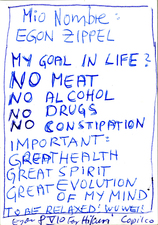 Mio Nombre:
EGON ZIPPEL
MY GOAL IN LIFE?
NO MEAT
NO ALCOHOL
NO DRUGS
NO CONSTIPATION
IMPORTANT:
GREAT HEALTH
GREAT SPIRIT
GREAT EVOLUTION
OF MY MIND
TO BE RELAXED! WU WEI!
Egon for Hikuri Copilco